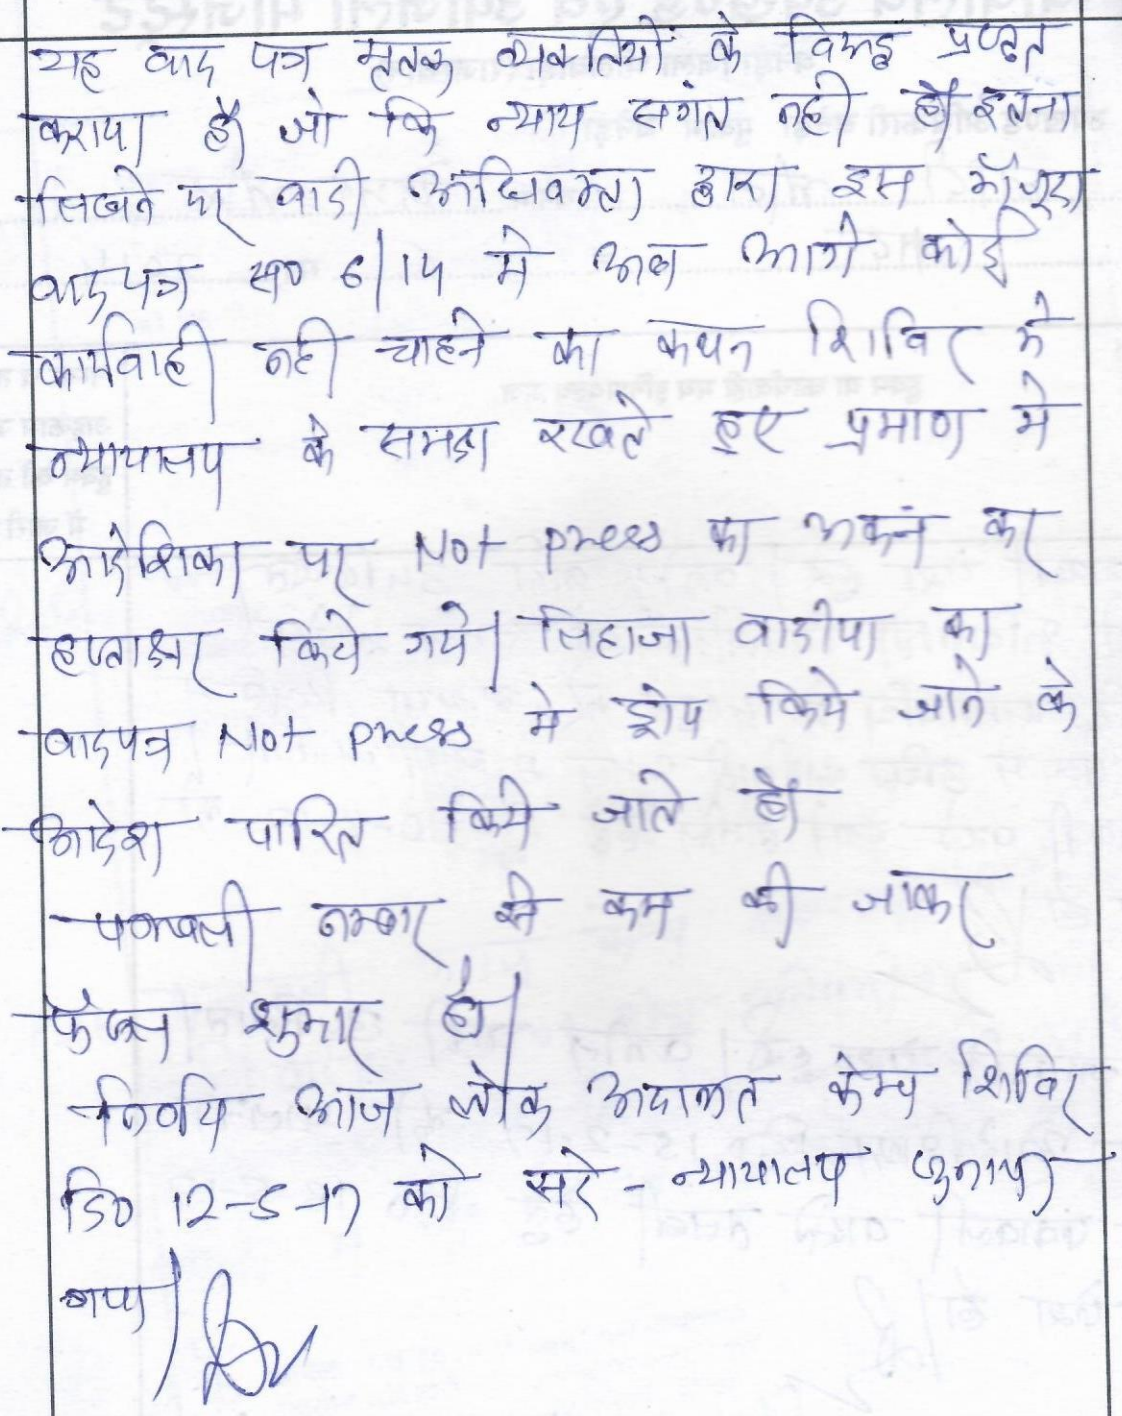 यह वाद पत्र मृतक व्यक्तियों के विरूद्ध प्रस्तुत
कराया है जो कि न्याय संगत नही है। इतना
लिखने पर वादी अधिवक्ता द्वारा इस मौजूदा
वादपत्र स0 6/14 मे अब आगे कोई
कार्यवाही नही चाहने का कथन शिविर मे
न्यायालय के समक्ष रखते हुए प्रमाण मे
आदेशिका पर Not press का अकंन कर
हस्ताक्षर किये गये। लिहाजा वादीया का
वादपत्र Not press मे ड्रोप किये जाने के
आदेश पारित किये जाते है।
पत्रावली नम्बर से कम की जाकर
फैसल शुमार हो।
निर्णय आज लोक अदालत केम्प शिविर
दि0 12-5-17 को सरे-न्यायालय सुनाया
गया।